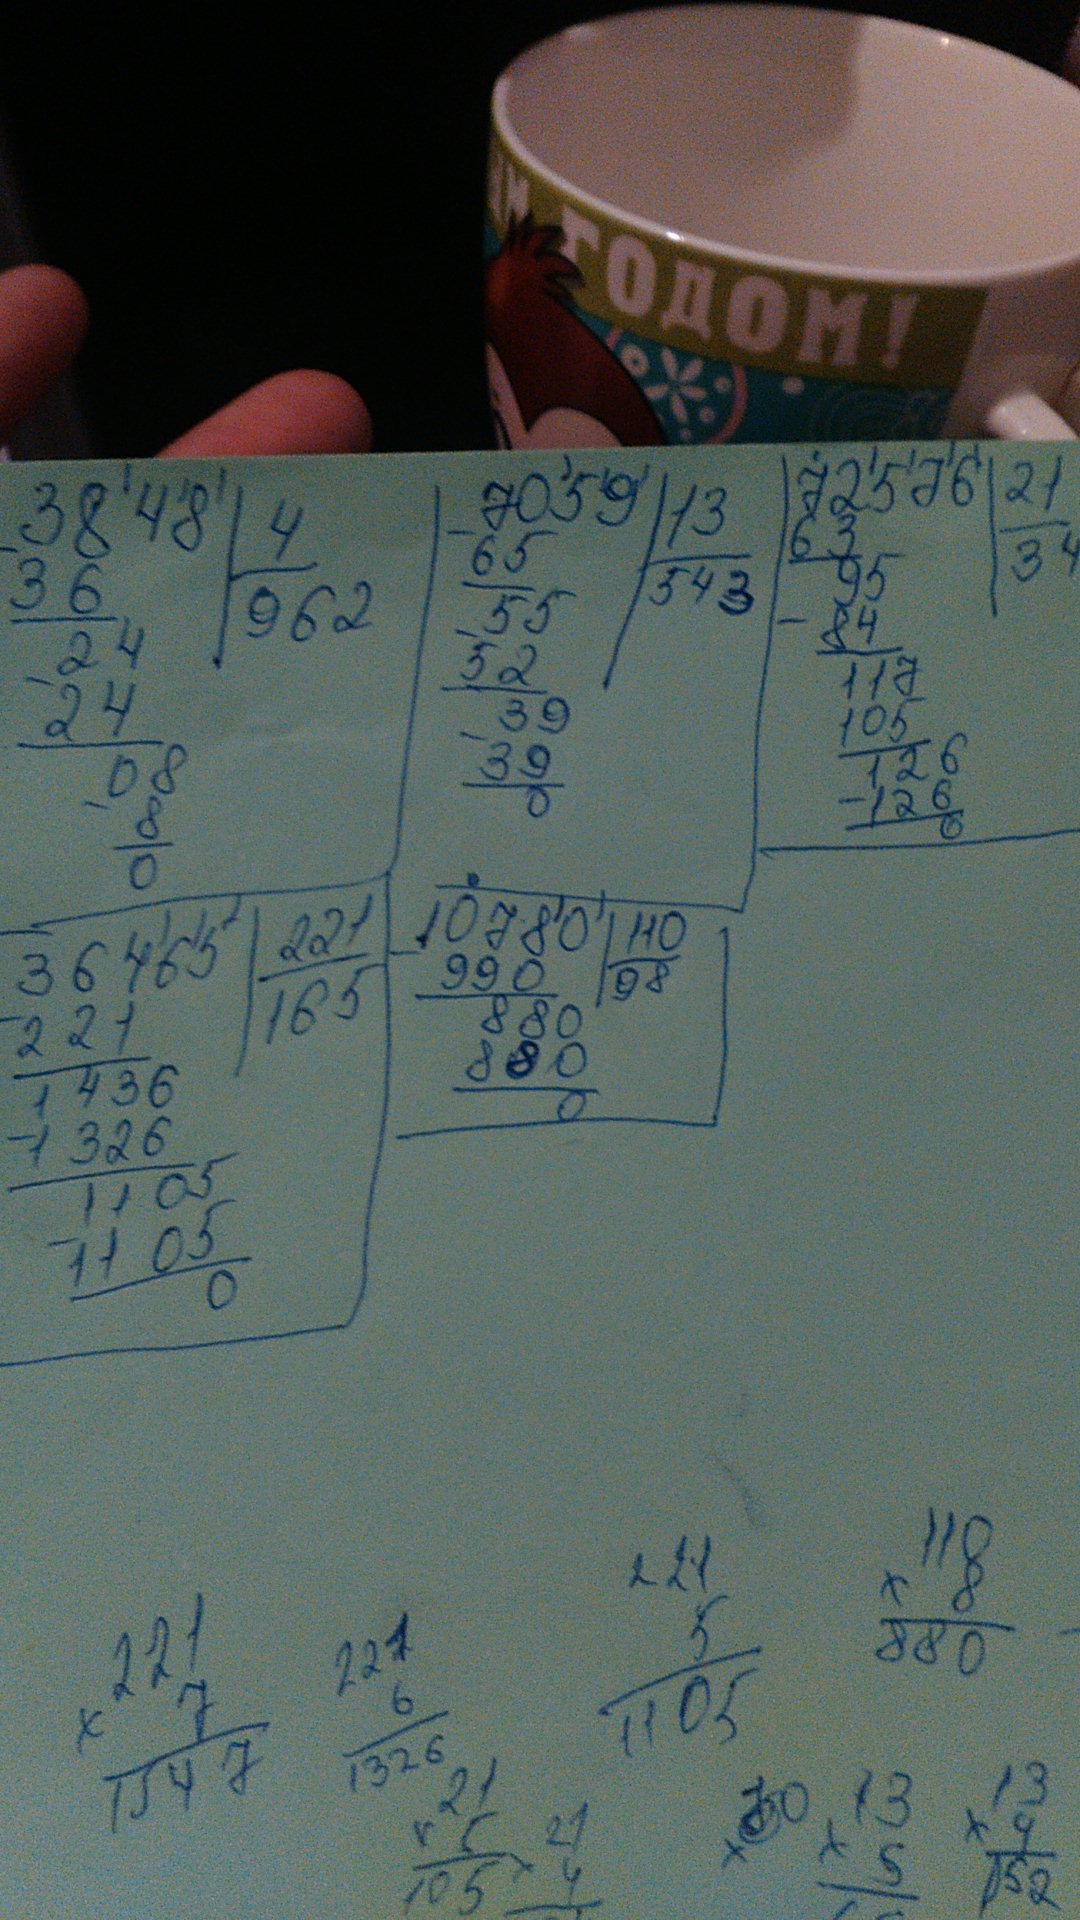 ГОДОМ!
3848 | 4
36 | 962
24
24
08
8
0
7059 | 13
65 | 543
55
52
39
39
0
72576 | 21
63 | 34
95
84
117
105
126
126
0
36465 | 221
221 | 165
1436
1326
1105
1105
0
10780 | 110
990 | 98
880
880
0
221
× 7
1547
221
6
1326
221
5
1105
118
× 8
880
21
× 5
105
21
× 4
13
× 5
13
× 4